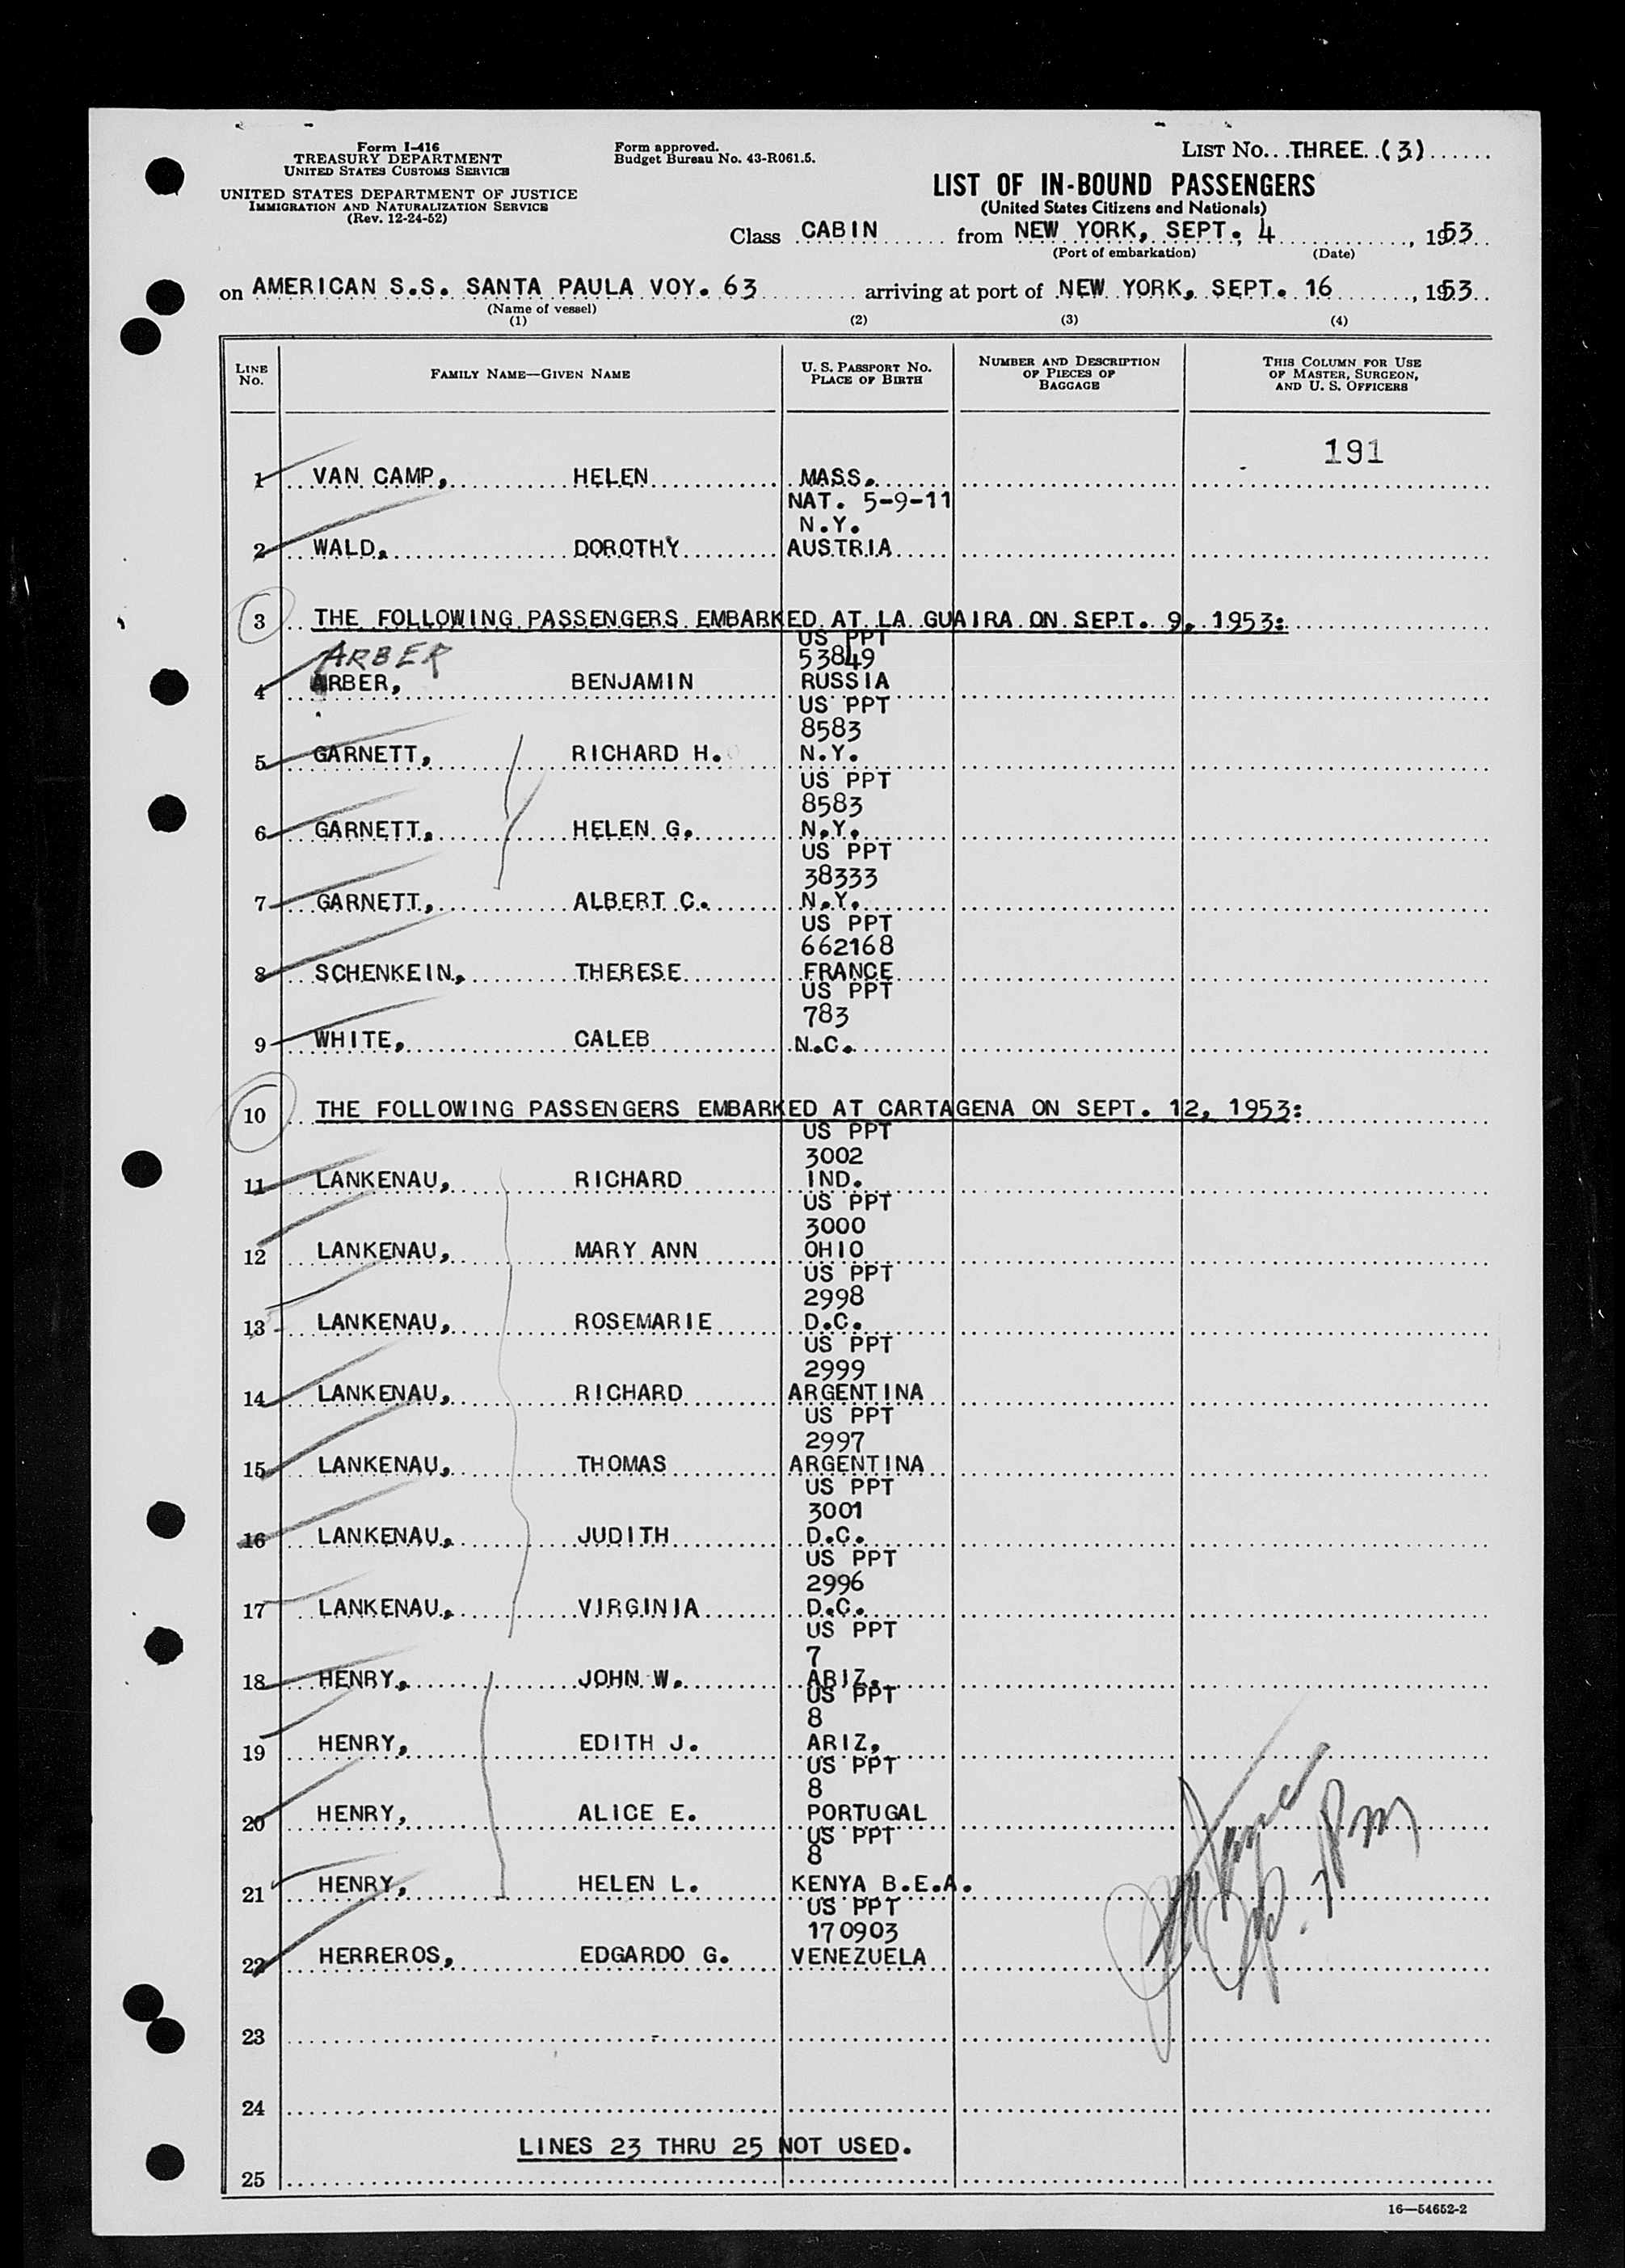 Form I-416
TREASURY DEPARTMENT
UNITED STATES CUSTOMS SERVICE
UNITED STATES DEPARTMENT OF JUSTICE
IMMIGRATION AND NATURALIZATION SERVICE
(Rev. 12-24-52)
Form approved.
Budget Bureau No. 43-R061.5.
LIST NO. THREE (3)
LIST OF IN-BOUND PASSENGERS
(United States Citizens and Nationals)
Class CABIN from NEW YORK, SEPT. 4, 1953
(Port of embarkation) (Date)
on AMERICAN S.S. SANTA PAULA VOY. 63 arriving at port of NEW YORK, SEPT. 16, 1953
(Name of vessel)
(1) (2) (3) (4)
LINE NO. FAMILY NAME—GIVEN NAME U. S. PASSPORT NO. PLACE OF BIRTH NUMBER AND DESCRIPTION OF PIECES OF BAGGAGE THIS COLUMN FOR USE OF MASTER, SURGEON, AND U. S. OFFICERS
191
1 VAN CAMP, HELEN MASS.
NAT. 5-9-11
N.Y.
2 WALD, DOROTHY AUSTRIA
3 THE FOLLOWING PASSENGERS EMBARKED AT LA GUAIRA ON SEPT. 9, 1953:
US PPT
ARBER 53849
4 ARBER, BENJAMIN RUSSIA
US PPT
8583
5 GARNETT, RICHARD H. N.Y.
US PPT
8583
6 GARNETT, HELEN G. N.Y.
US PPT
38333
7 GARNETT, ALBERT C. N.Y.
US PPT
662168
8 SCHENKEIN, THERESE FRANCE
US PPT
783
9 WHITE, CALEB N.C.
10 THE FOLLOWING PASSENGERS EMBARKED AT CARTAGENA ON SEPT. 12, 1953:
US PPT
3002
11 LANKENAU, RICHARD IND.
US PPT
3000
12 LANKENAU, MARY ANN OHIO
US PPT
2998
13 LANKENAU, ROSEMARIE D.C.
US PPT
2999
14 LANKENAU, RICHARD ARGENTINA
US PPT
2997
15 LANKENAU, THOMAS ARGENTINA
US PPT
3001
16 LANKENAU, JUDITH D.C.
US PPT
2996
17 LANKENAU, VIRGINIA D.C.
US PPT
7
18 HENRY, JOHN W. ARIZ.
US PPT
8
19 HENRY, EDITH J. ARIZ,
US PPT
8
20 HENRY, ALICE E. PORTUGAL
US PPT
8
21 HENRY, HELEN L. KENYA B.E.A.
US PPT
170903
22 HERREROS, EDGARDO G. VENEZUELA
23
24
LINES 23 THRU 25 NOT USED.
25
16—54652-2